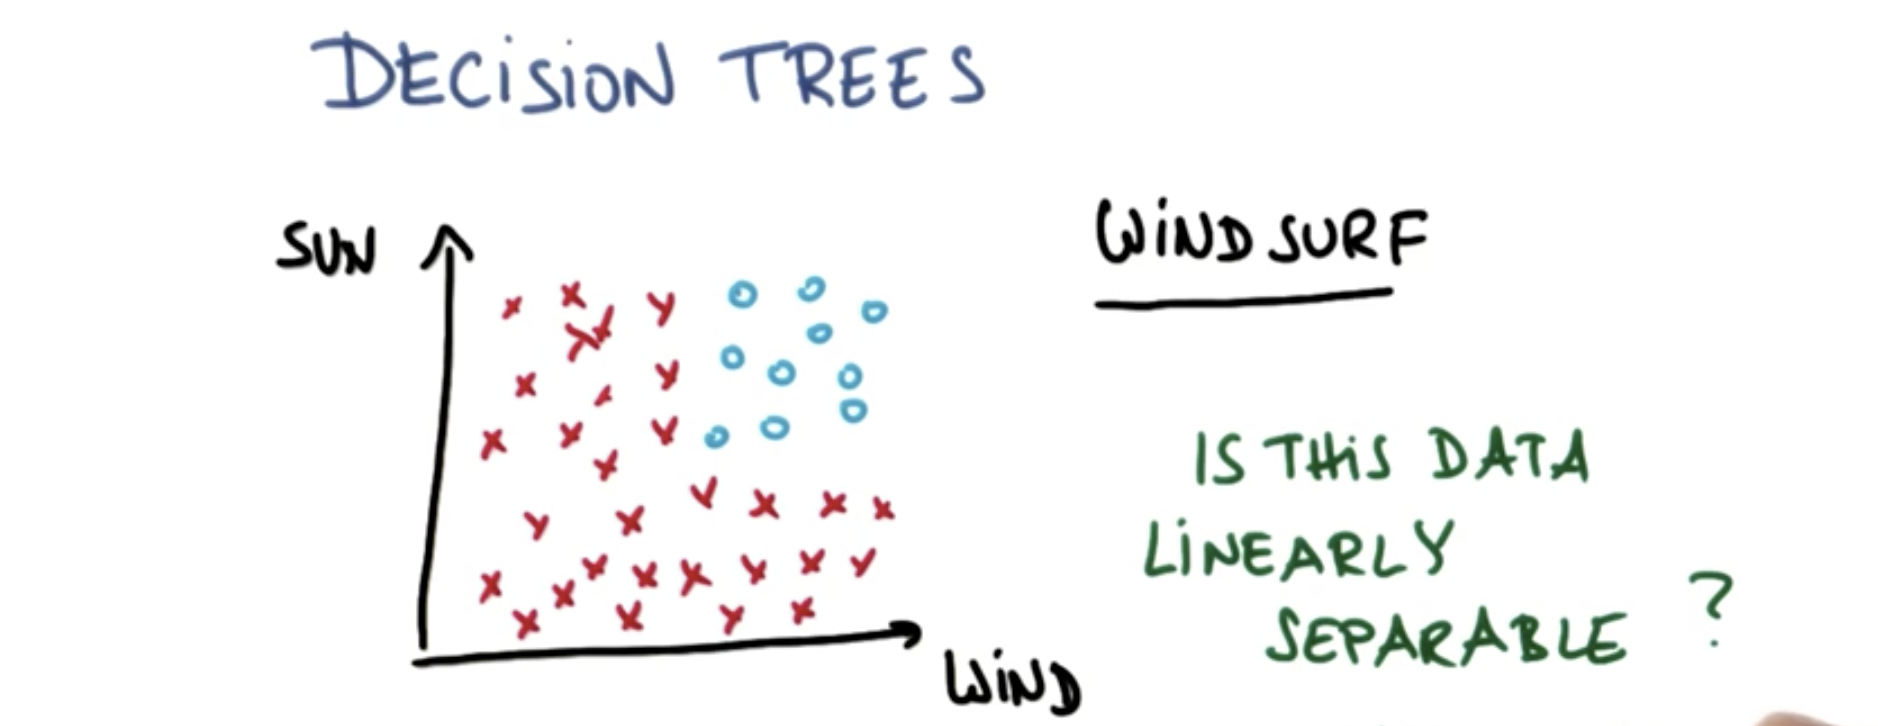 DECISION TREES
SUN
WINDSURF
IS THIS DATA
LINEARLY
SEPARABLE ?
WIND